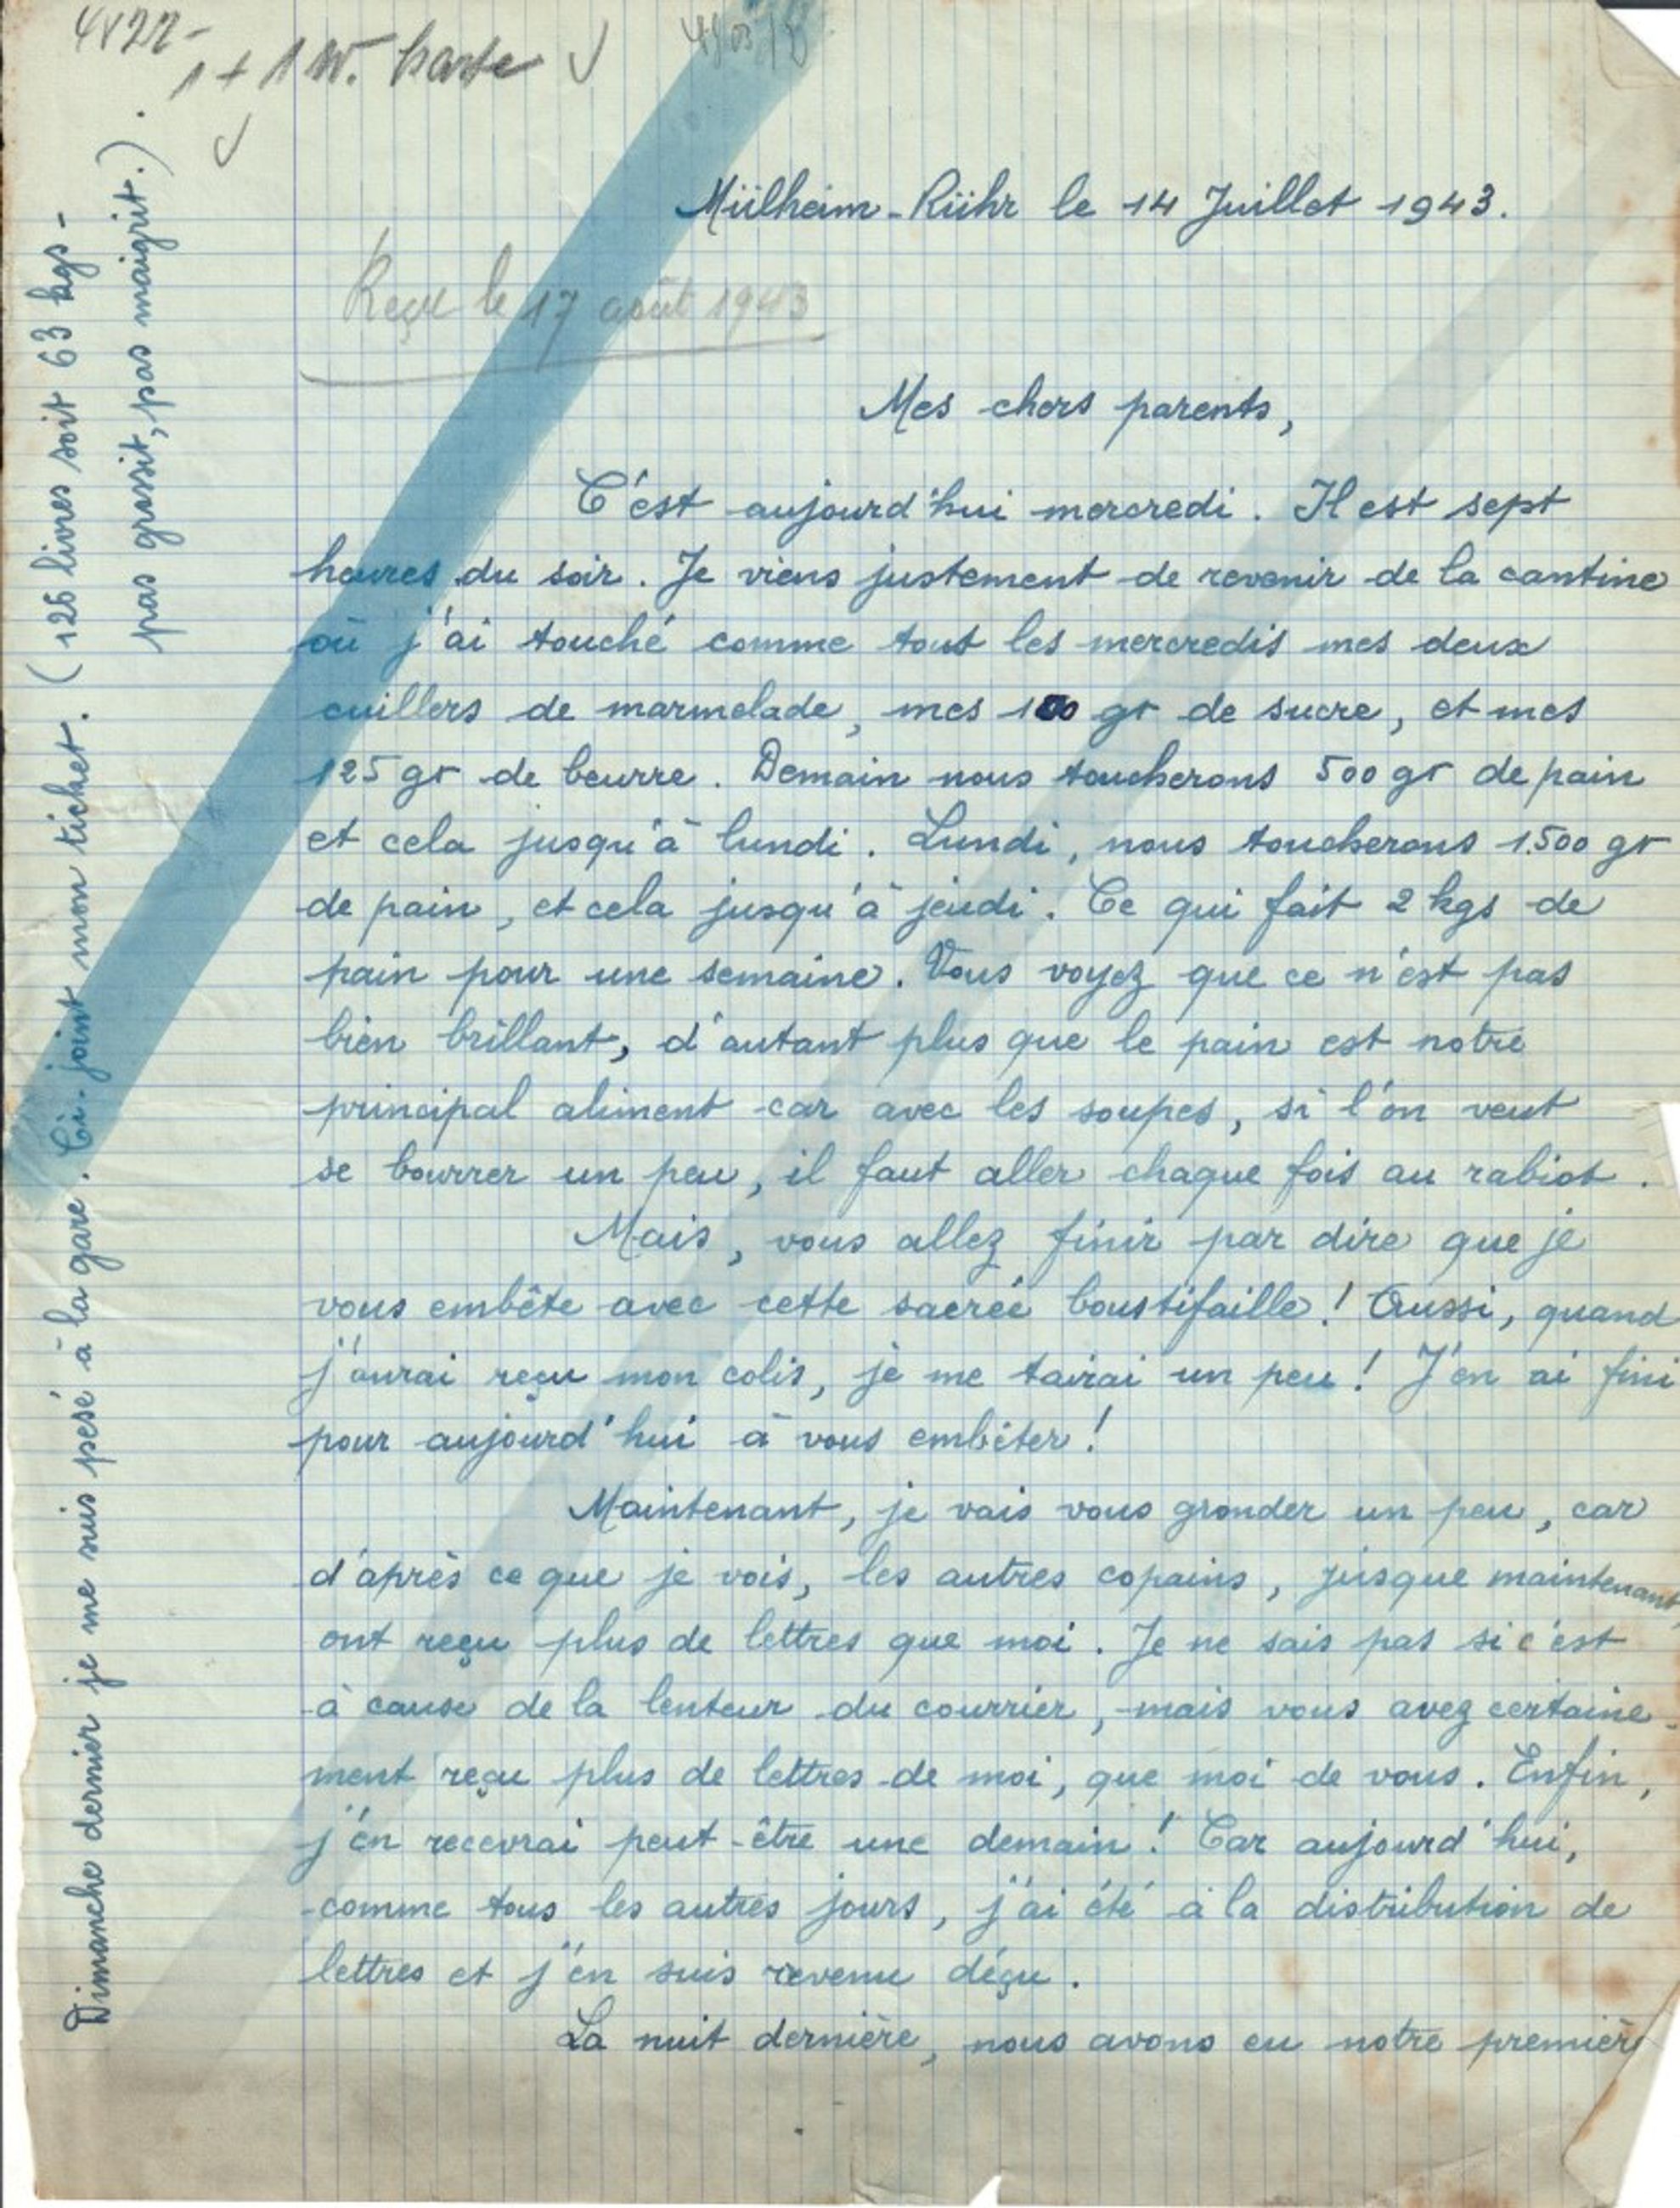 4822-
1 + 1 W. Karte
Mülheim-Rühr le 14 Juillet 1943.
Reçu le 17 août 1943
Mes chers parents,
C'est aujourd'hui mercredi. Il est sept
heures du soir. Je viens justement de revenir de la cantine
où j'ai touché comme tout les mercredis mes deux
cuillers de marmelade, mes 100 gr de sucre, et mes
125 gr de beurre. Demain nous toucherons 500 gr de pain
et cela jusqu'à lundi. Lundi, nous toucherons 1.500 gr
de pain, et cela jusqu'à jeudi. Ce qui fait 2 kgs de
pain pour une semaine. Vous voyez que ce n'est pas
bien brillant, d'autant plus que le pain est notre
principal aliment car avec les soupes, si l'on veut
se bourrer un peu, il faut aller chaque fois au rabiot.
Mais, vous allez finir par dire que je
vous embête avec cette sacrée boustifaille! Aussi, quand
j'aurai reçu mon colis, je me tairai un peu! J'en ai fini
pour aujourd'hui à vous embêter!
Maintenant, je vais vous gronder un peu, car
d'après ce que je vois, les autres copains, jusque maintenant,
ont reçu plus de lettres que moi. Je ne sais pas si c'est
à cause de la lenteur du courrier, mais vous avez certaine-
ment reçu plus de lettres de moi, que moi de vous. Enfin,
j'en recevrai peut-être une demain! Car aujourd'hui,
comme tous les autres jours, j'ai été à la distribution de
lettres et j'en suis revenu déçu.
La nuit dernière, nous avons eu notre première
Dimanche dernier je me suis pesé à la gare. Ci-joint mon tichet. (126 livres soit 63 kgs -
pas grossit, pas maigrit.).